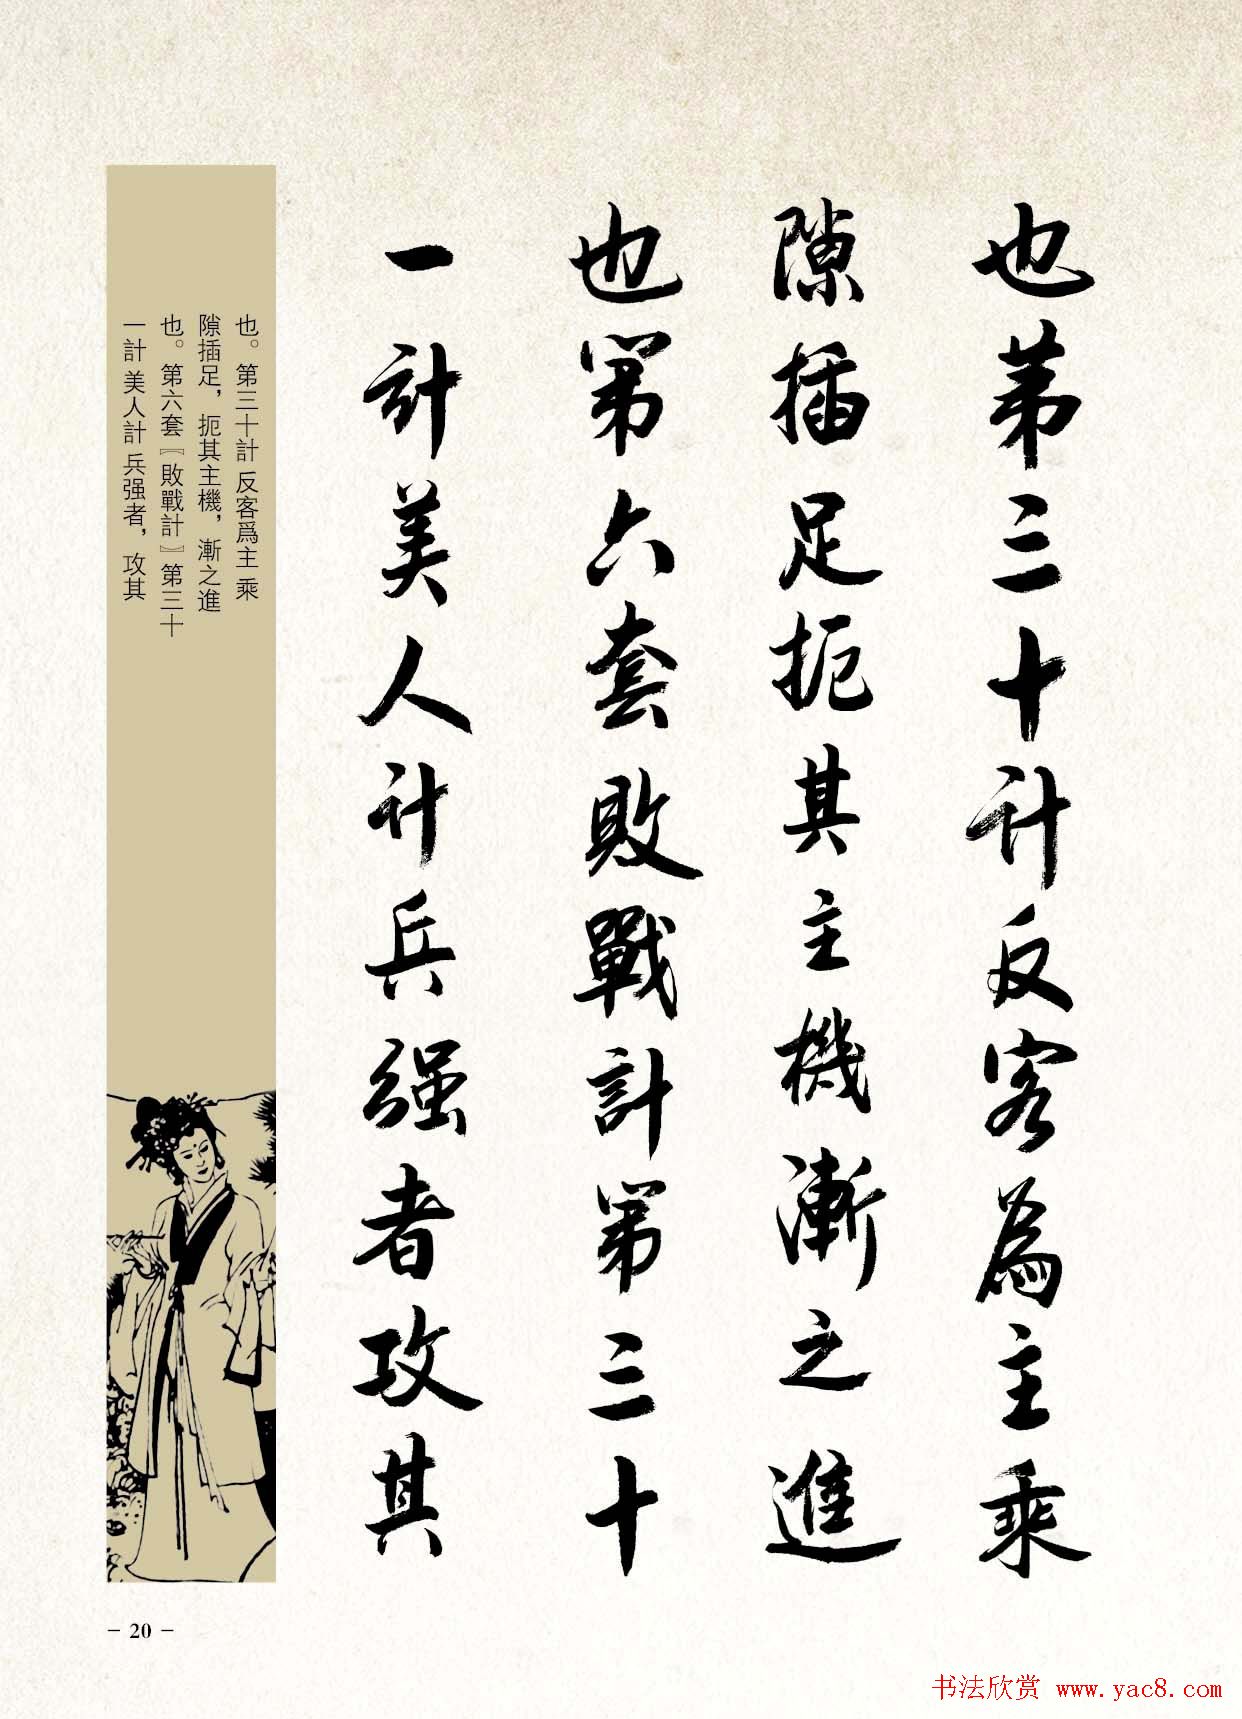 也第三十计反客為主乘
隙插足扼其主機漸之進
也第六套敗戰計第三十
一計美人计兵强者攻其
也。第三十計 反客爲主 乘
隙插足，扼其主機，漸之進
也。第六套〖敗戰計〗第三十
一計 美人計 兵强者，攻其
- 20 -
书法欣赏 www.yac8.com